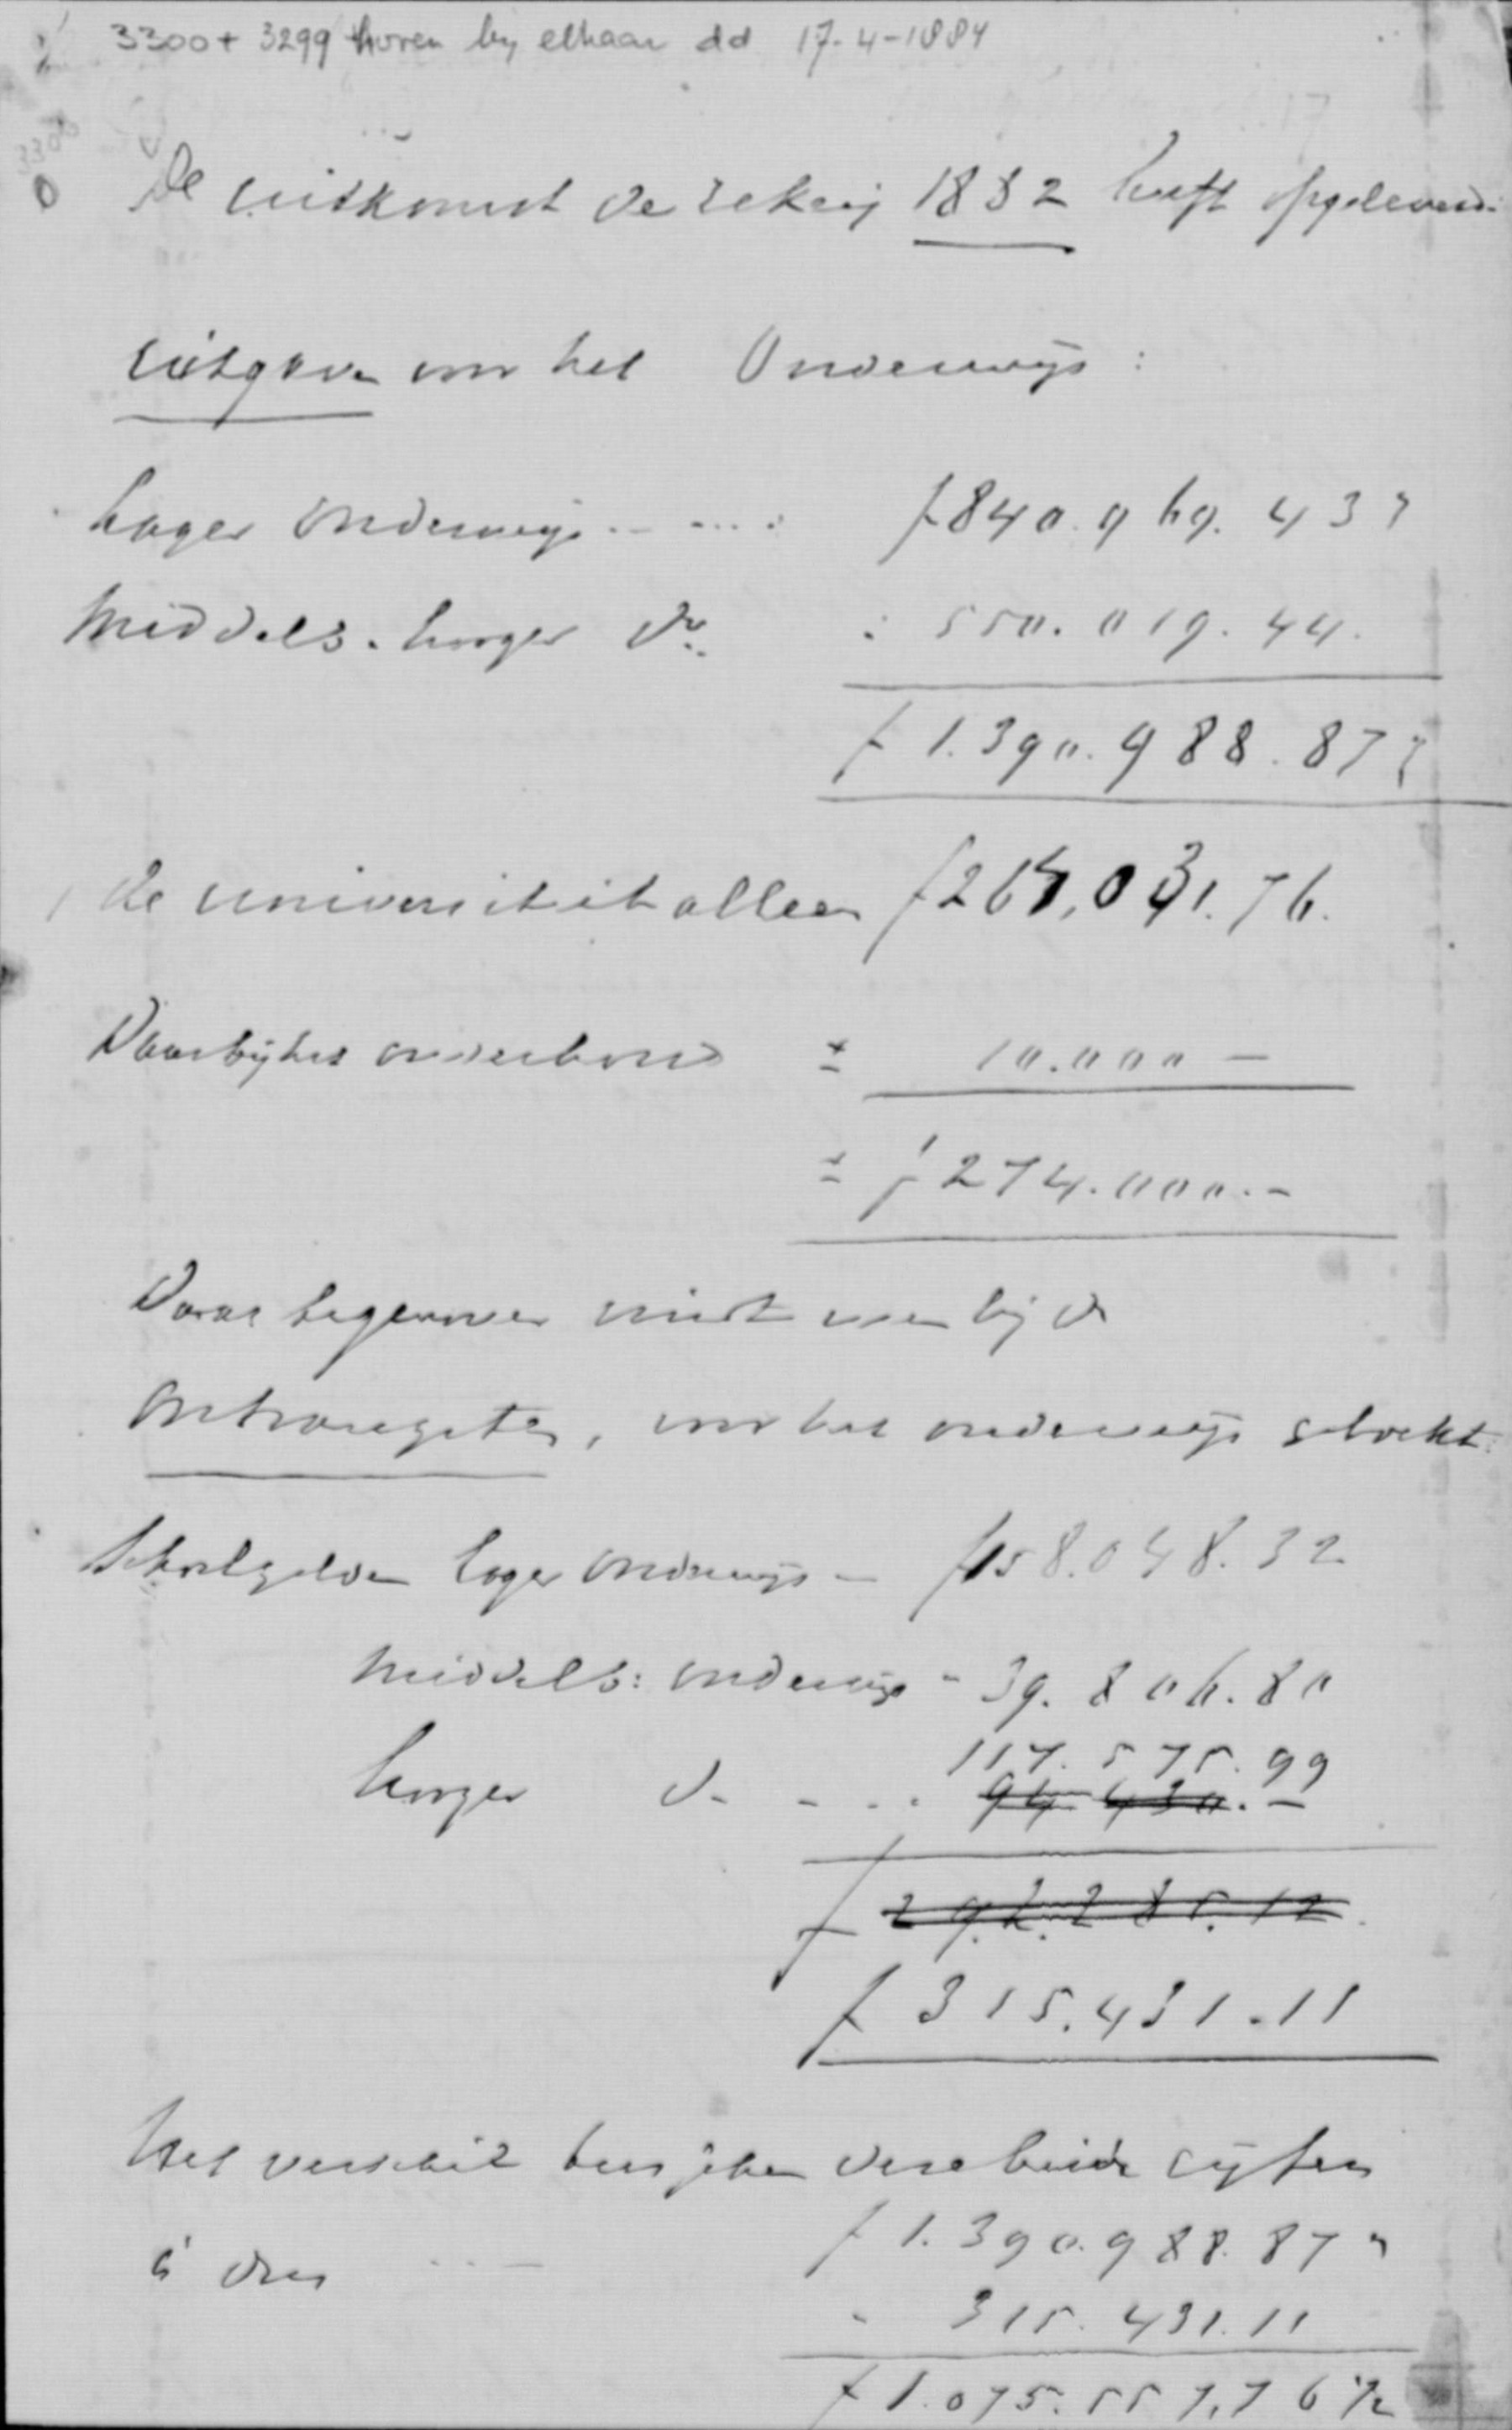 3300 + 3299 horen by elkaar dd 17-4-1884
3300
De uitkomst de rekeng 1882 heeft opgeleverd:
uitgaven voor het Onderwijs:
Lager Onderwijs f 840.969.43 5
Middelb. hooger do. : 550.019.44.
f 1.390.988.87 5
de universiteit alleen f 264,031.76.
Daarbij het onderhoud ± 10.000 —
± f 274.000.-
Daartegenover vindt men bij de
Ontvangsten, voor het onderwijs gebockt.
Schoolgelden lager Onderwijs - f 158.048.32
Middelb: onderwijs - 39.806.80
117.575.99
hooger do - - . . 94.430.-
f 292.285.12
f 315.431.11
Het verschil tusschen deze beide cijfers
f 1.390.988.87 5
is dus - 315.431.11
f 1.075.557,76 1/2